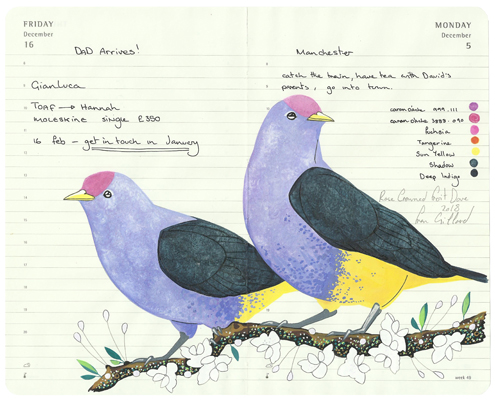 FRIDAY
December
16
DAD Arrives!
GianLuca
Hannah
MOLESKINE single £350
16 feb - get in touch in January
MONDAY
December
5
Manchester
catch the train, have tea with David's
parents, go into town.
caran d'ache
caran d'ache
Fuchsia
Tangerine
Sun Yellow
Shadow
Deep Indigo
Rose Crowned Fruit Dove
week